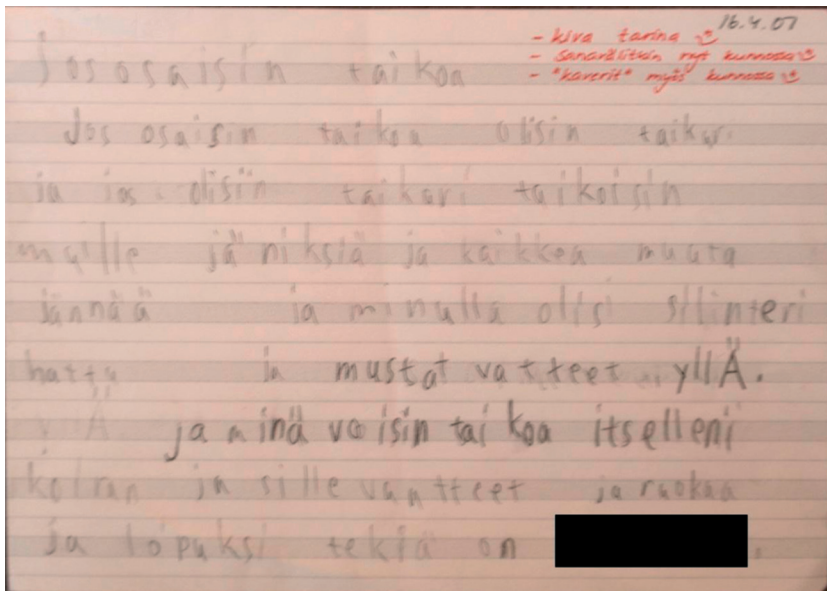 16.4.07
- kiva tarina
- sanavälitkin nyt kunnossa
- "kaverit" myös kunnossa
jos osaisin taikoa
Jos osaisin taikoa olisin taikuri
ja jos olisiin taikari taikoisin
muille jäniksiä ja kaikkea muuta
jännää ja minulla olisi silinteri
hattu ja mustat vatteet yllÄ.
Ä ja minä voisin taikoa itselleni
koiran ja sille vaatteet ja ruokaa
ja lopuksi tekiä on